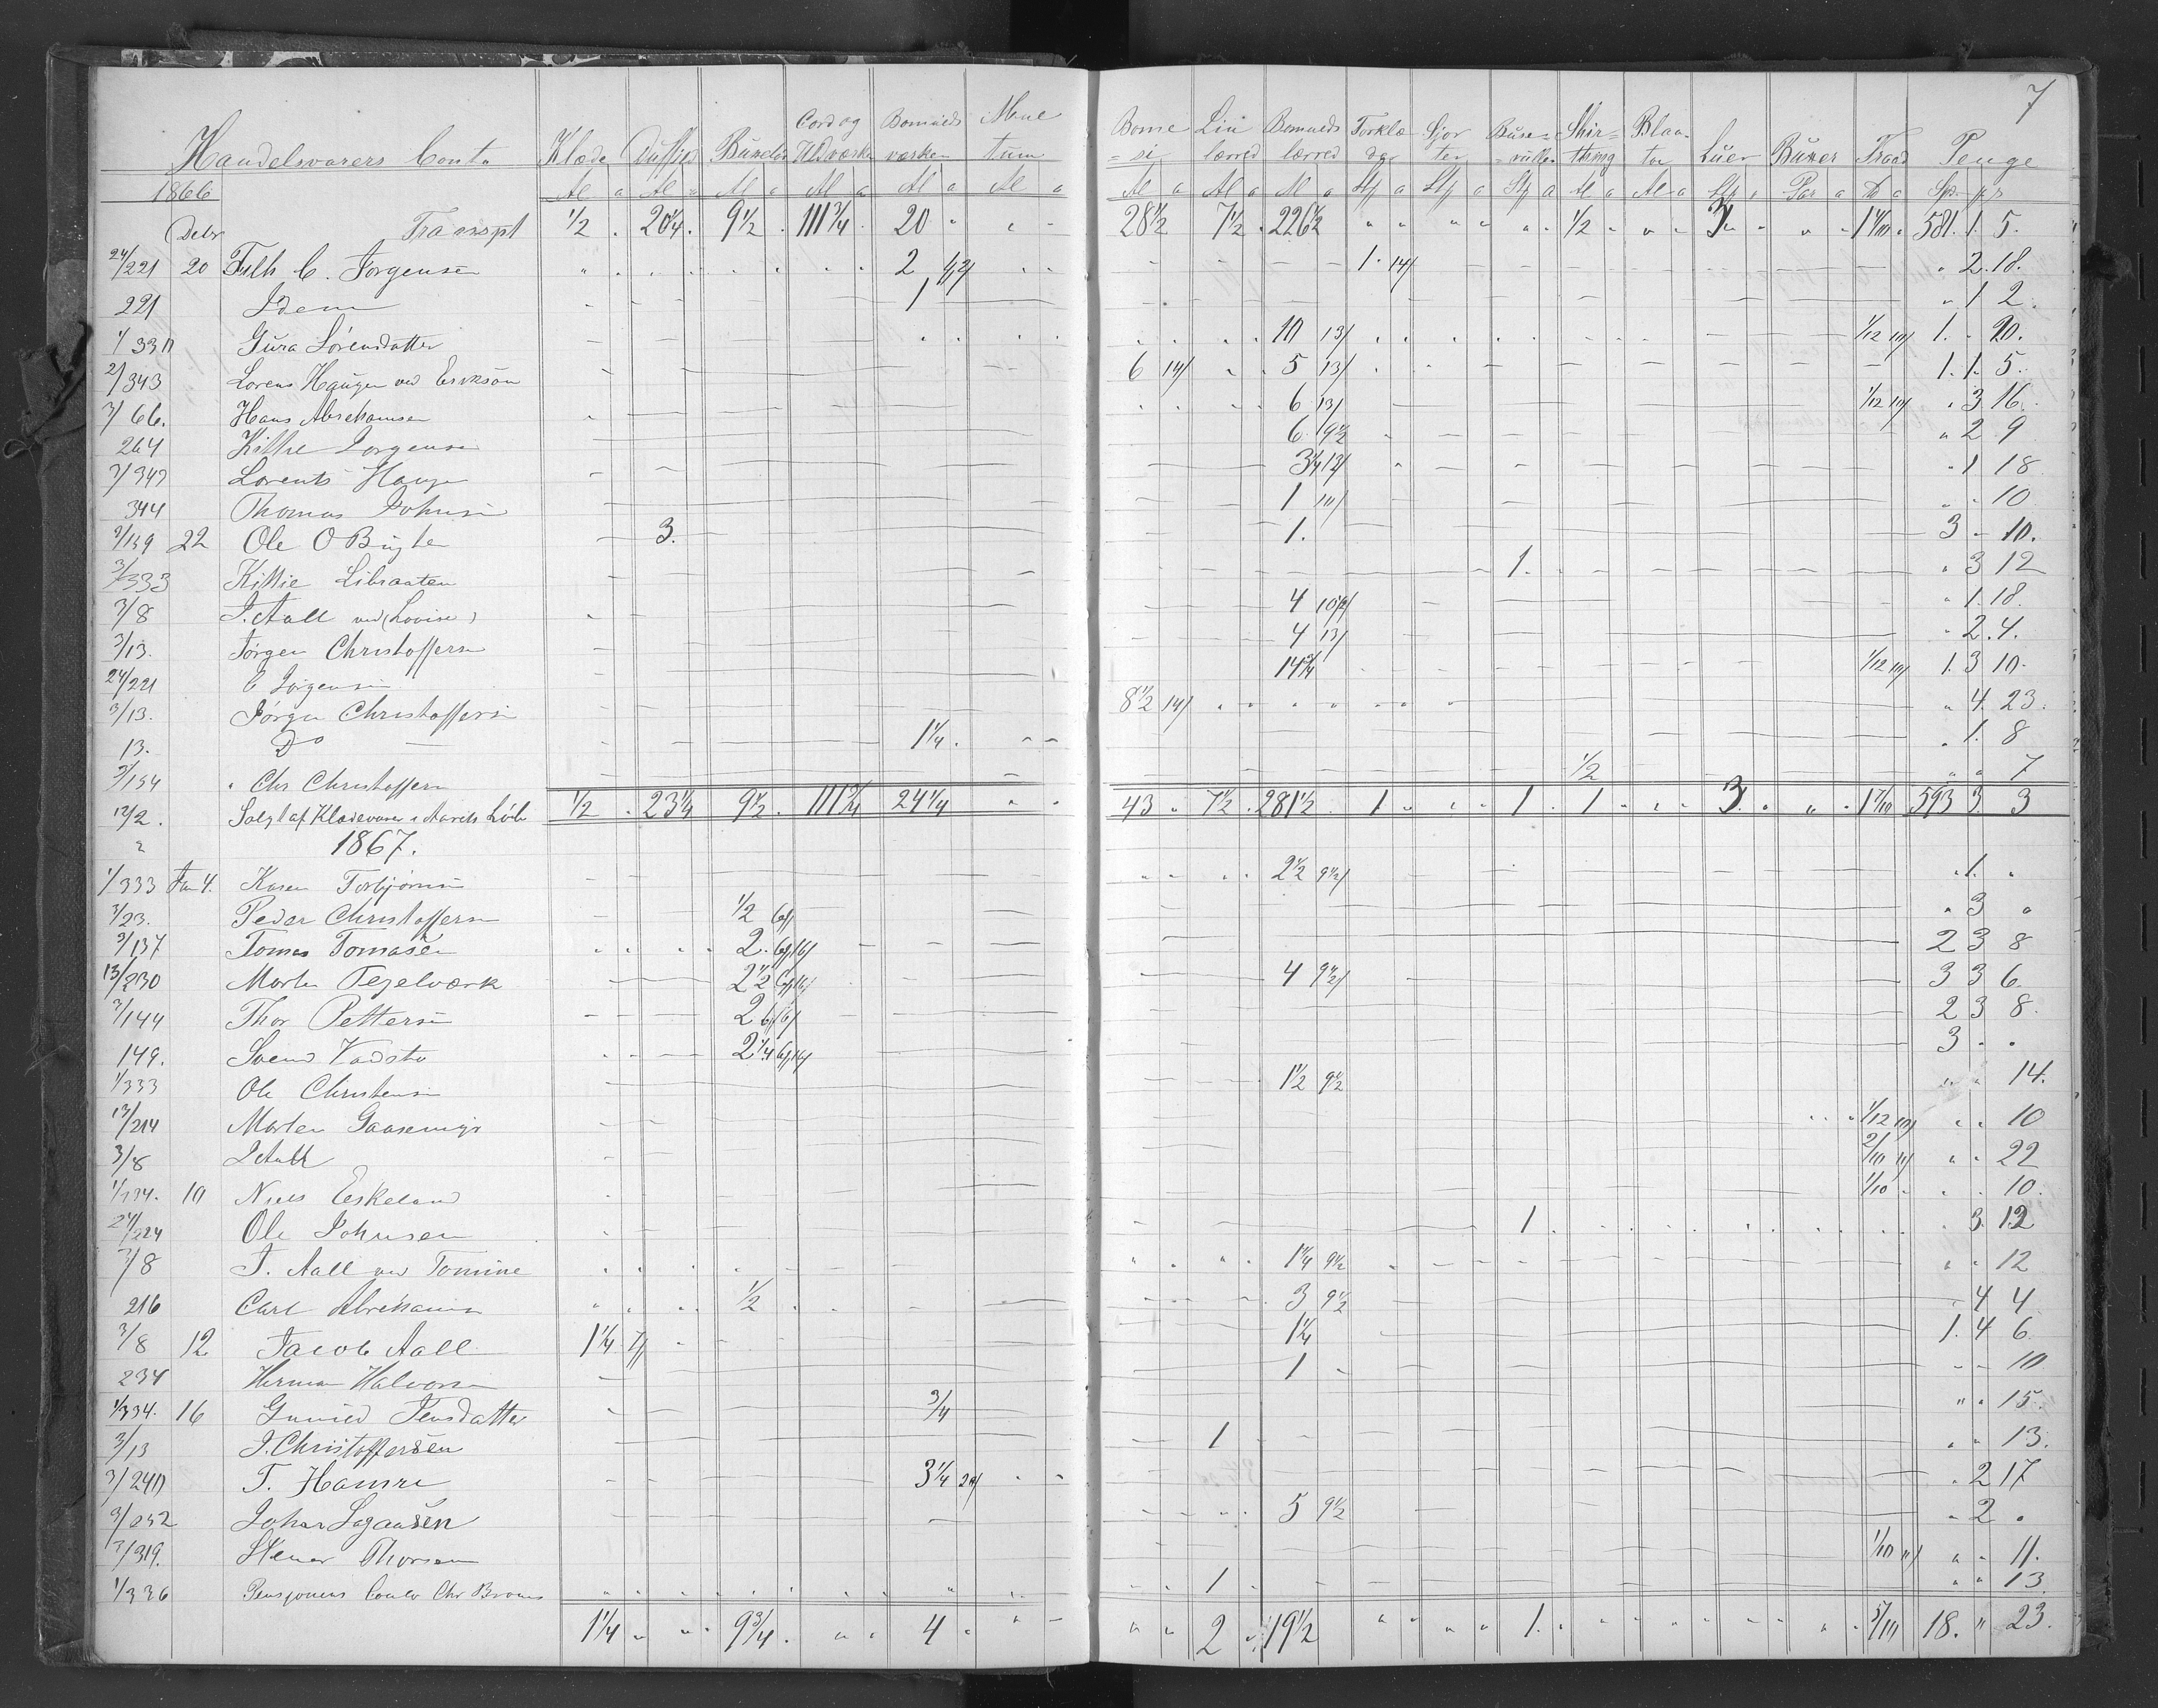 7
Handelsvarers Conto Klæde Duffel Buxetøi Cord og Uldværken Bomulds værken Mol tum Bome =si Lin lærred Bomulds lærred Torklæ der Sjor ter Buse= =rulle Shir= thing Blaa- tøi Luer Buxer Traad Penge
1866 Al a Al a Al a Al a Al a Al a Al a Al a Al a Stk a Stk a Stk a Al a Al a Stk Par a ℔ a Spd. ß
Debr Transpt 1/2 20 1/4 9 1/2 111 3/4 20 28 1/2 7 1/2 226 1/2 1/2 3 581. 1. 5.
24/221 20 Filh C. Jorgensen 2 1. 14/ 2. 18.
221 Idem 1 1 2.
1/330 Gura Sørensdatter 10 13/ 1/12 1. 20.
2/343 Lorens Haugen ved Erikson 6 14/ 5 13/ 1. 1. 5.
3/66. Hans Abrehamsen 6 13/ 1/12 3 16.
264 Kittie Jorgensen 6 9 1/2 2 9
3/343 Lorents Haugen 3 1/4 13/ 1 18
344 Thomas Johnsen 1 10
3/139 22 Ole O Bughen 3. 1. 3 10.
3/333 Kittie Libraaten 1. 3 12
3/8 J. Aall ved (Lovise) 4 1. 18.
3/13. Jørgen Christoffersen 4 13/ 2. 4.
24/221 C Jørgensen 14 3/4 1/12 1. 3 10.
3/13. Jørgen Christoffersen 8 1/2 14/ 4. 23.
13. Do 1 1/4. 1. 8
3/154 Chr Christoffersen 1/2 7
12/2. Solgt af Klædevarer i Aarets Løb 1/2 23 1/4 9 1/2. 111 3/4 24 1/4 43 7 1/2 281 1/2 1 1 1 3. 593 3. 3
1867.
1/333 Jan 4. Karen Torbjørnsen 2 1/2 9 1/2/ 1.
3/23. Peder Christoffersen 1/2 3
3/137 Tomas Tomasen 2. 2 3 8
13/230 Morten Tegelværk 2 1/2 4 9 1/2/ 3 3 6.
3/144 Thor Pettersen 2 2 3 8.
149. Svend Vadsto 2 1/4 3
1/333 Ole Christensen 1 1/2 9 1/2 14.
13/214 Morten Gaasemyr 1/12 10
3/8 J Aall 2/10 22
1/334. 10 Niels Eskeland 1/10 10.
24/224 Ole Johnsen 1. 3. 12
3/8 J. Aall ved Tomine 1 1/4 9 1/2 12
216 Carl Abrehams 1/2 3 9 1/2 4 4
3/8 12 Jacob Aall 1 1/4 1 1/4 1. 4 6
234 Herman Halvorsen 1 10
1/334. 16 Gunild Jensdatter 3/4 15.
3/13 J. Christoffersen 1 13.
3/240 T. Hamre 3 1/4 2 17
3/252 Johan Sagaasen 5 9 1/2 2
7/319. Stener Thorsen 1/10 11.
1/336 Pensjoners Conto Chr Brouns 1 13.
1 1/4 9 3/4. 4 2 19 1/2 1. 5/10 18. 23.